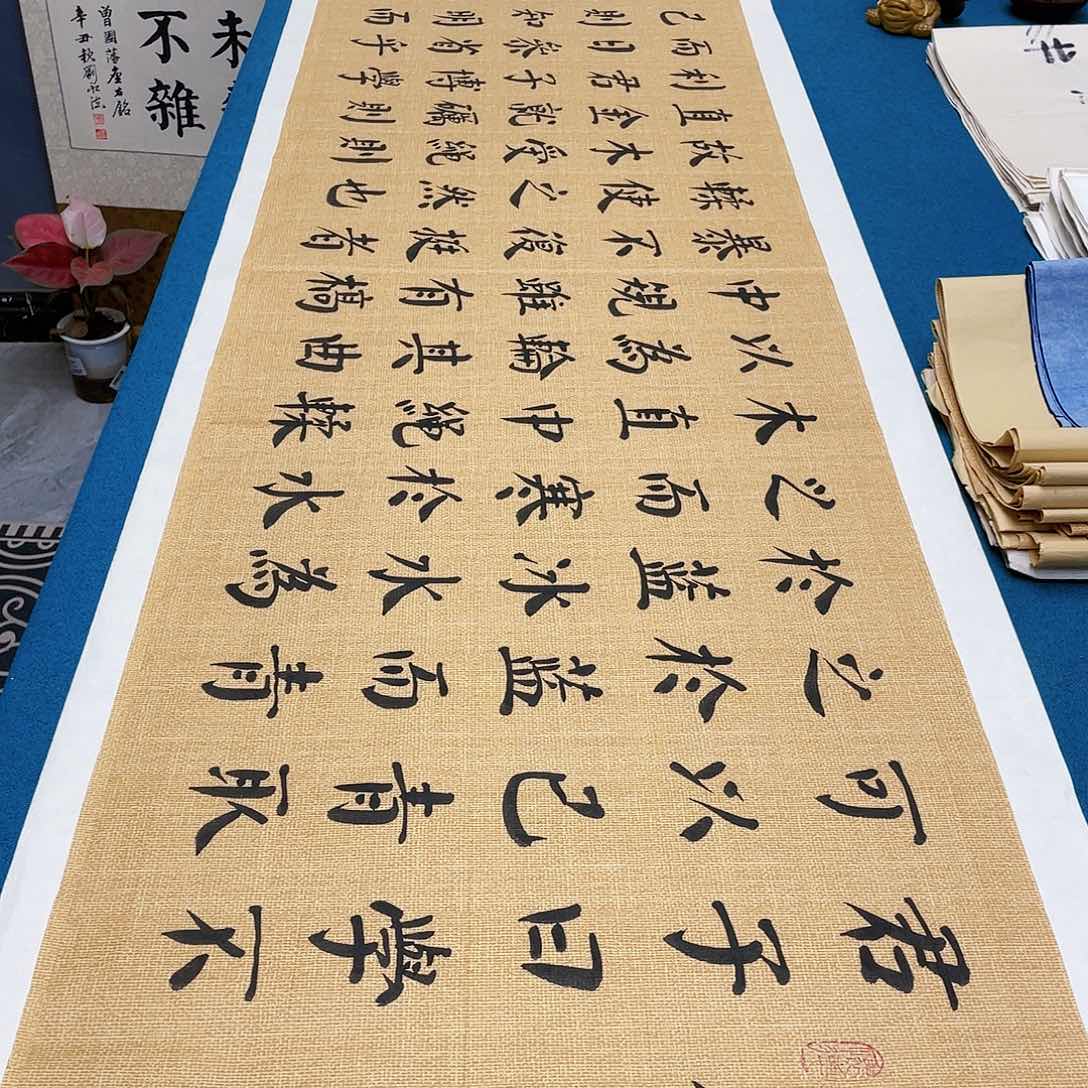 君子曰學不
可以已青取
之於藍而青
於藍冰水為
之而寒於水
木直中繩輮
以為輪其曲
中規雖有槁
暴不復挺者
輮使之然也
故木受繩則
直金就礪則
利君子博學
而日參省乎
己則知明而
未
不雜
曾國藩座右銘
辛丑秋劉